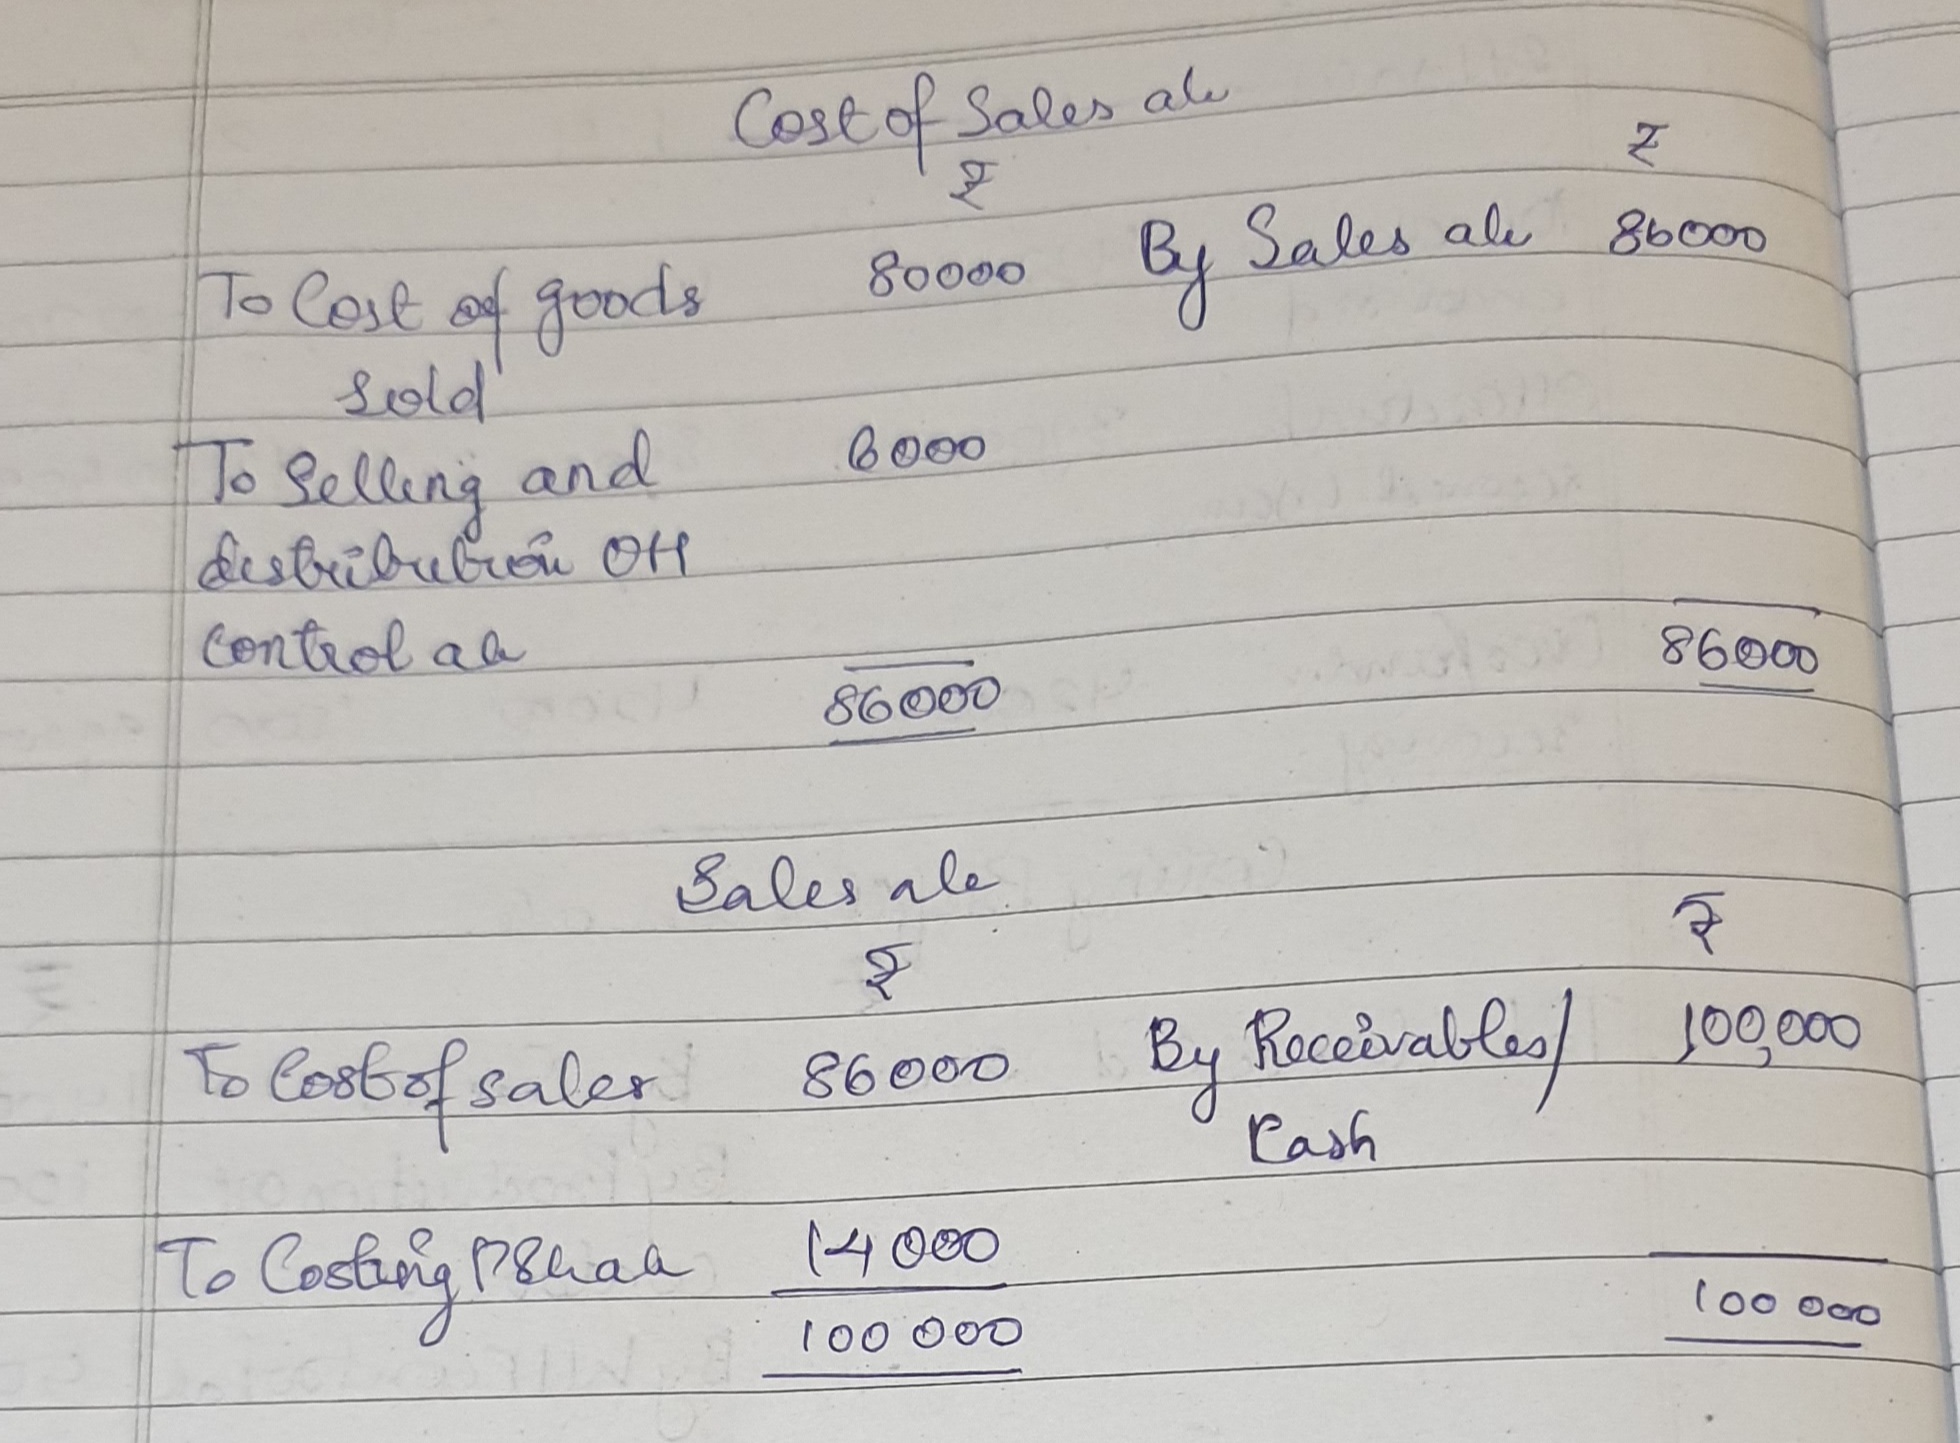 Cost of Sales a/c
₹ ₹
To Cost of goods 80000 By Sales a/c 86000
sold
To Selling and 6000
distribution OH
control a/c
86000 86000
Sales a/c
₹ ₹
To Cost of sales 86000 By Receivables/ 100,000
Cash
To Costing P&L a/c 14000
100 000 100 000